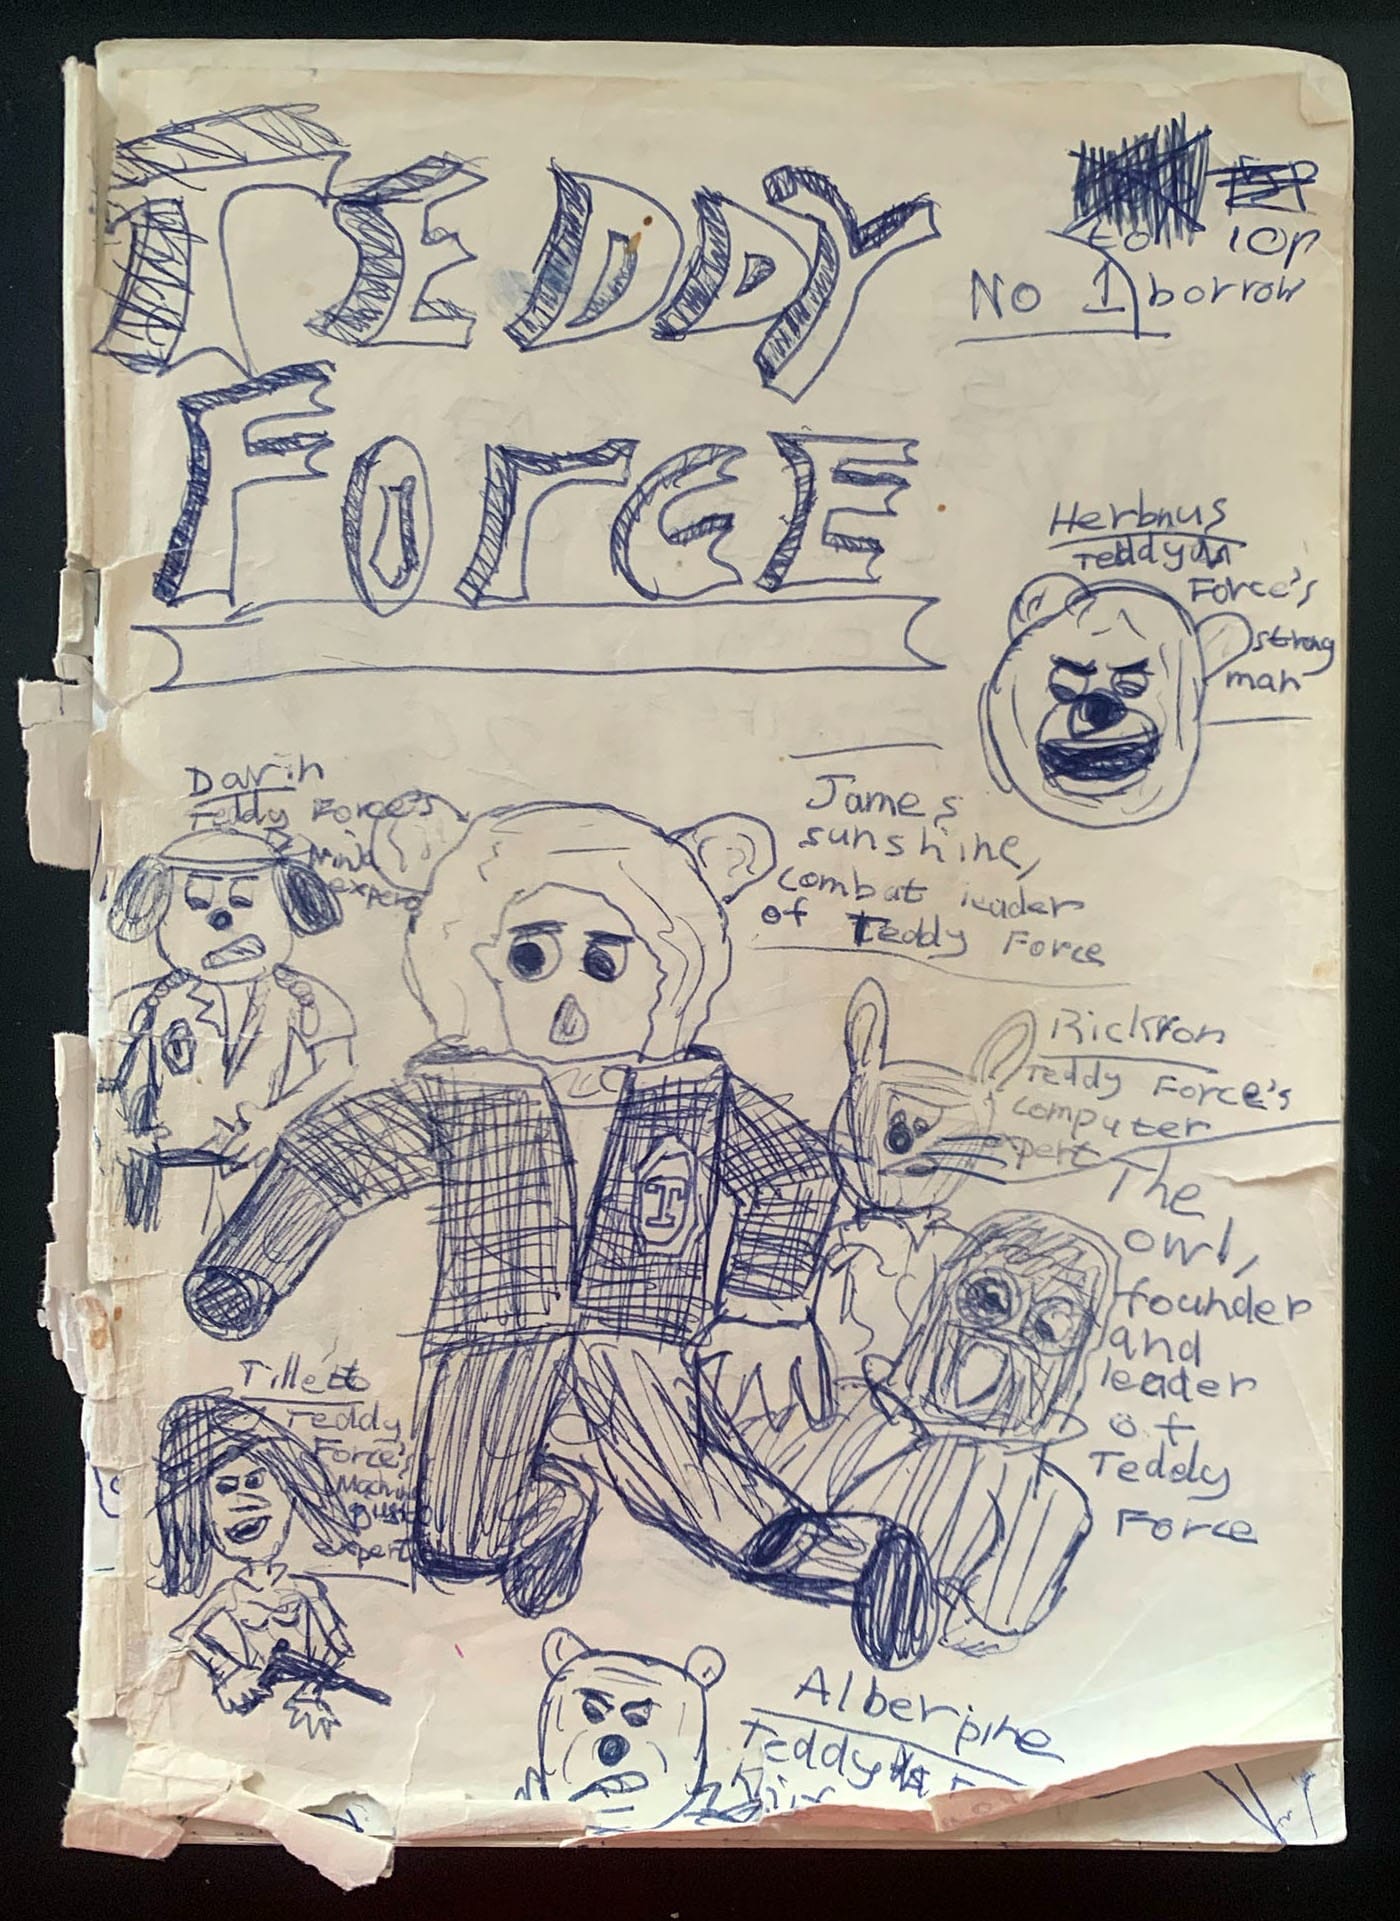 TEDDY
FORCE
to 10p
No 1 borrow
Herbnus
Teddy
Force's
strong
man
Darin
Teddy Force's
Ninja
expert
James
sunshine,
combat leader
of Teddy Force
Rickron
Teddy Force's
computer
pert
The
owl,
founder
and
leader
of
Teddy
Force
Tilletto
Teddy
Force's
Machine
expert
Alberpine
Teddy
T